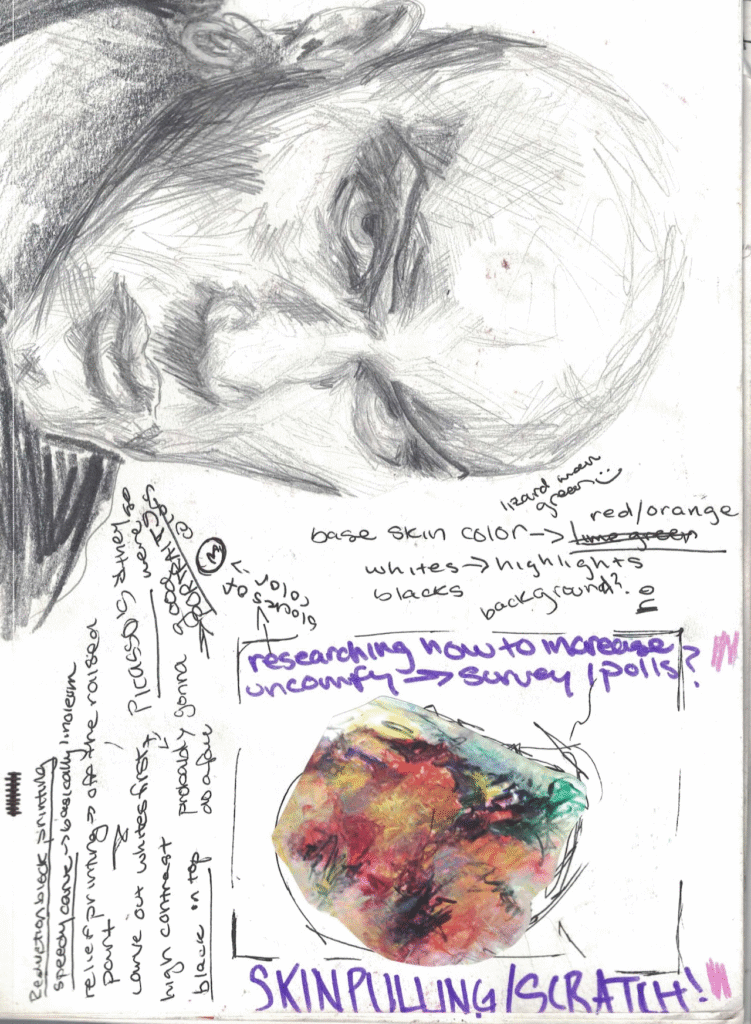 lizard man
green :)
base skin color → red/orange
lime green
whites → highlights
blacks
background?
blocks of
color
researching how to increase
uncomfy → survey/polls?
SKINPULLING/SCRATCH!
Reduction block printing
speedy carve → basically linoleum
relief printing → off the raised
part
carve out whites first,
high contrast
black on top
Picasso's
probably gonna
do a few